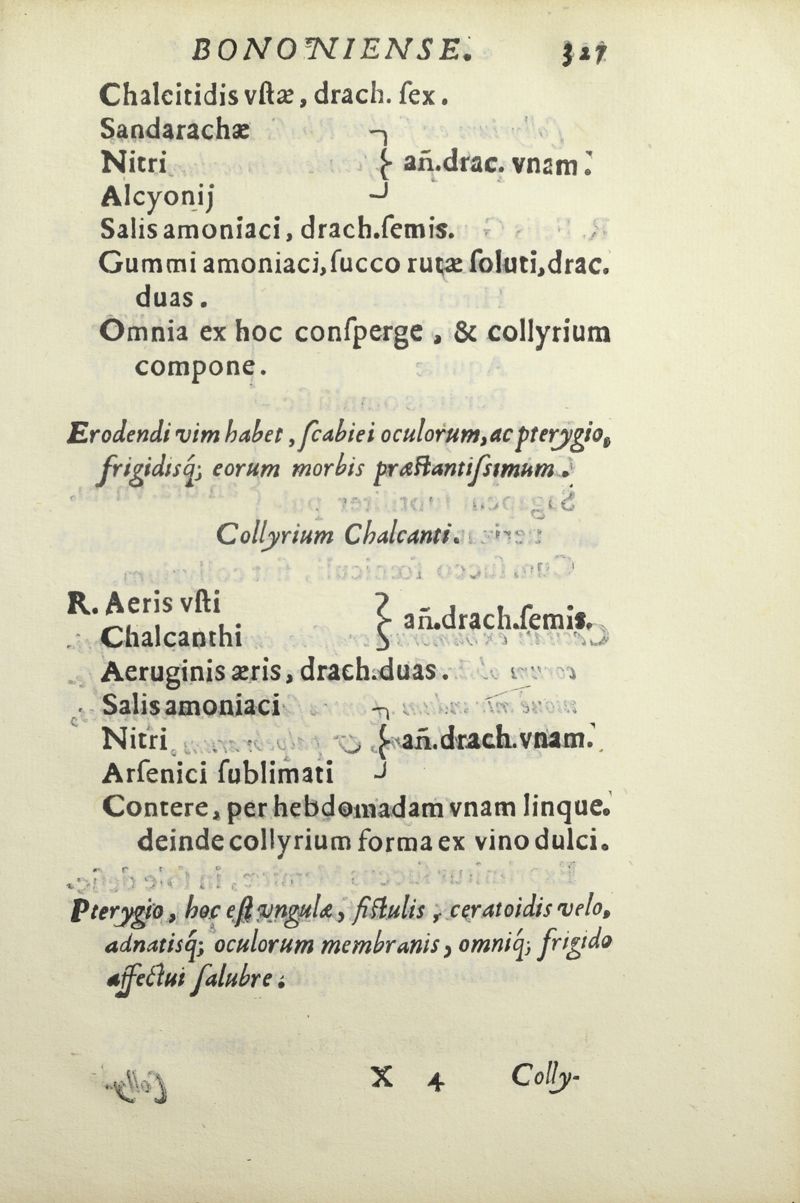 BONONIENSE. 327
Chalcitidis vſtæ, drach. ſex.
Sandarachæ
Nitri } añ. drac. vnam.
Alcyonij
Salis amoniaci, drach. ſemis.
Gummi amoniaci, ſucco rutæ ſoluti, drac.
duas.
Omnia ex hoc conſperge, & collyrium
compone.
Erodendi vim habet, ſcabiei oculorum, ac pterygio,
frigidisq; eorum morbis præſtantiſsimum.
Collyrium Chalcanti.
R. Aeris vſti
Chalcanthi } añ. drach. ſemis.
Aeruginis æris, drach. duas.
Salis amoniaci
Nitri } añ. drach. vnam.
Arſenici ſublimati
Contere, per hebdomadam vnam linque.
deinde collyrium forma ex vino dulci.
Pterygio, hoc eſt vngulæ, fiſtulis, ceratoidis velo,
adnatisq; oculorum membranis, omniq; frigido
affectui ſalubre.
X 4 Colly-